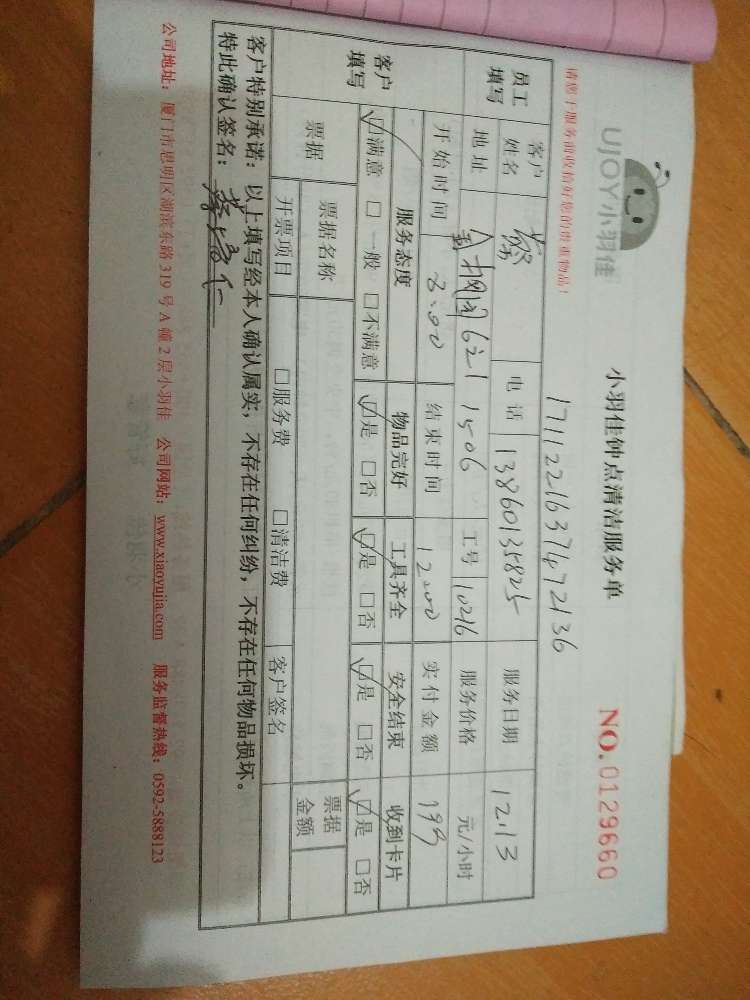 UJOY小羽佳
小羽佳钟点清洁服务单
NO.0129660
请您于服务前收拾好您的贵重物品！
1711221637472136
员工填写
客户姓名 蔡 电话 13860135825 服务日期 12.13
地址 621 1506 工号 10216 服务价格 元/小时
开始时间 8:00 结束时间 12:00 实付金额 199
客户填写
服务态度 物品完好 工具齐全 安全结束 收到卡片
☑满意 □一般 □不满意 ☑是 □否 ☑是 □否 ☑是 □否 ☑是 □否
票据 票据名称 票据金额
开票项目 □服务费 □清洁费 客户签名
客户特别承诺：以上填写经本人确认属实，不存在任何纠纷，不存在任何物品损坏。
特此确认签名：
公司地址：厦门市思明区湖滨东路 319 号 A 幢 2 层小羽佳 公司网站：www.xiaoyujia.com 服务监督热线：0592-5888123